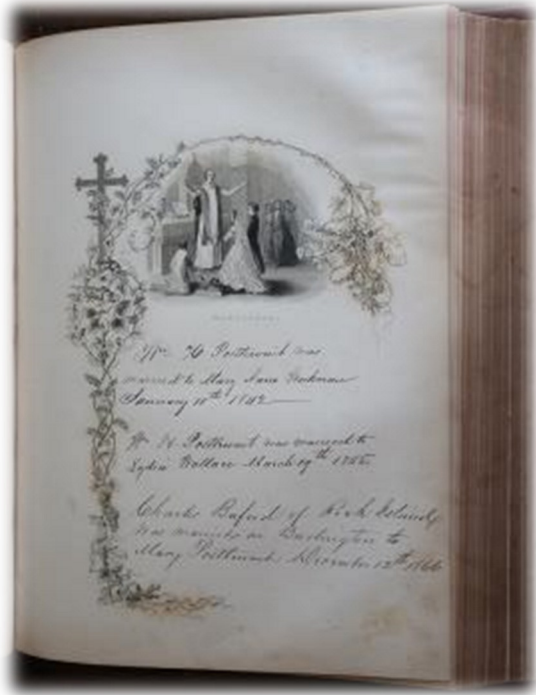 Wm H Postlewait was
married to Mary Jane
January 10th 1842
W H Postlewait was married to
Lydia Wallace March 19th
Charles Buford of Rock Island
was married in Burlington to
Mary Postlewait December 12th 1866